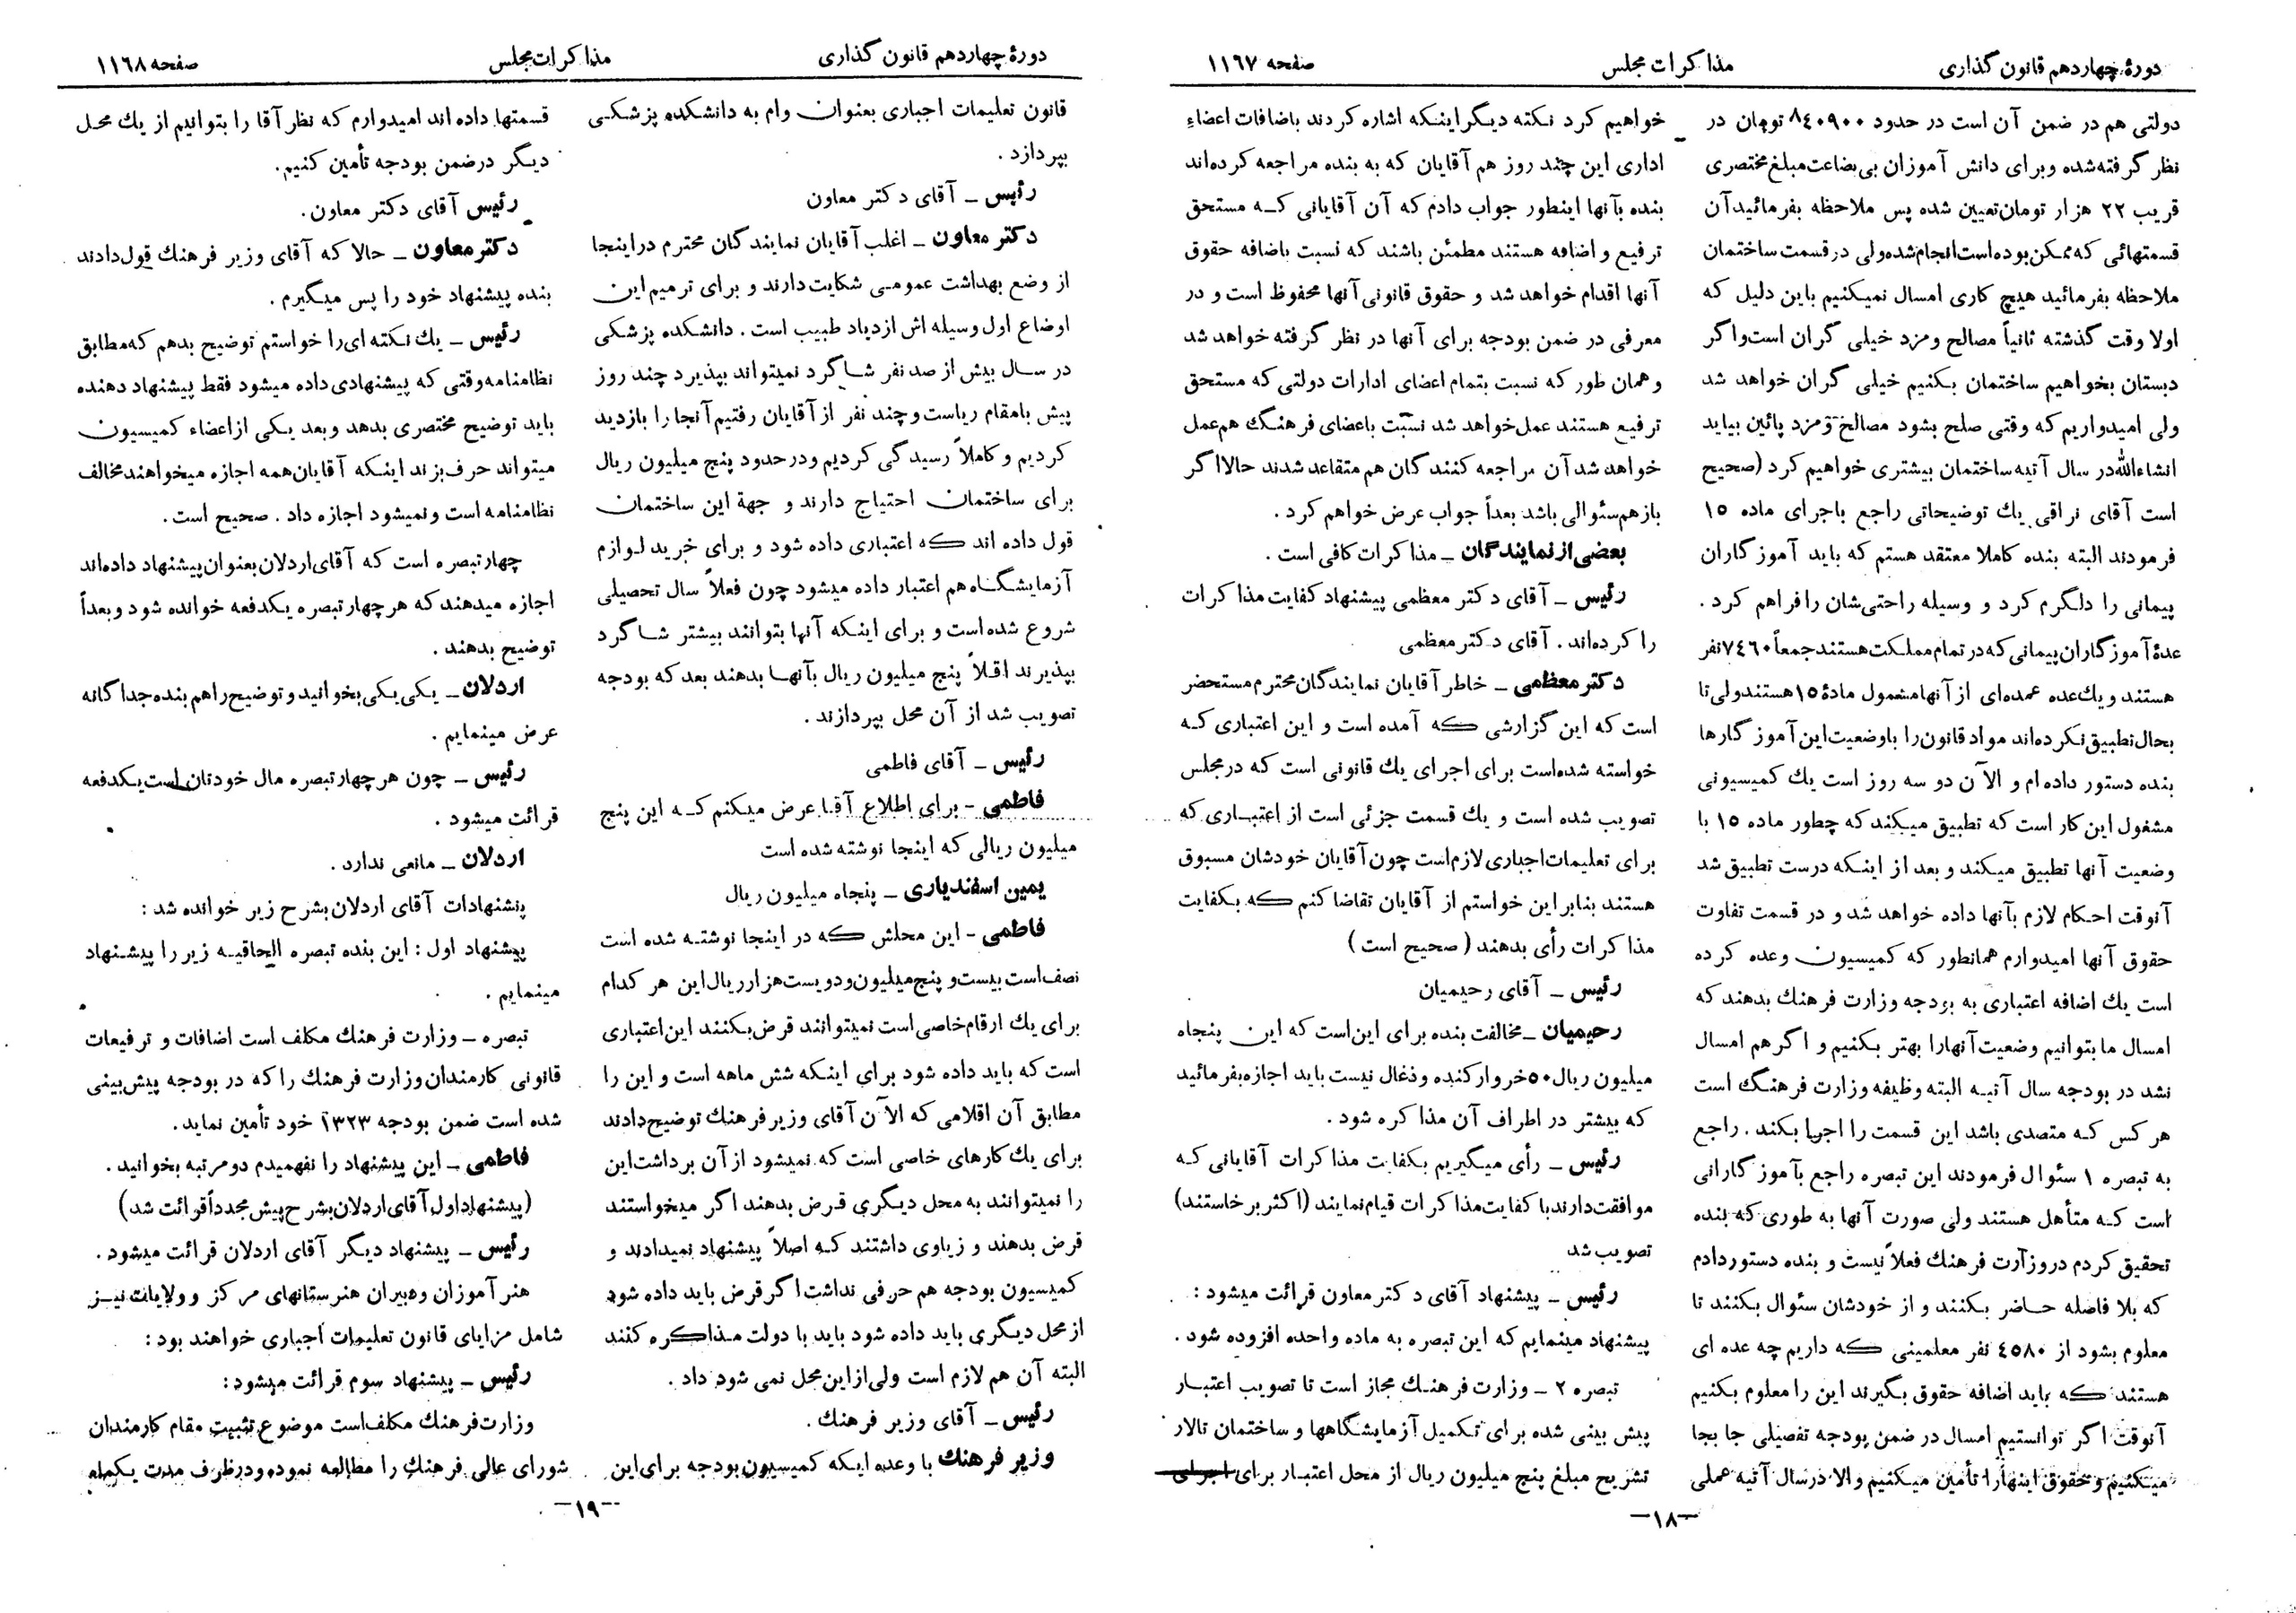 دورهٔ چهاردهم قانون گذاری
مذاکرات مجلس
صفحه ۱۱٦۷
دولتی هم در ضمن آن است در حدود ۸٤۰۹۰۰ تومان در
نظر گرفته‌شده وبرای دانش آموزان بی‌بضاعت مبلغ مختصری
قریب ۲۲ هزار تومان تعیین شده پس ملاحظه بفرمائید آن
قسمتهائی که ممکن بوده است انجام شده ولی در قسمت ساختمان
ملاحظه بفرمائید هیچ کاری امسال نمیکنیم باین دلیل که
اولا وقت گذشته ثانیاً مصالح ومزد خیلی گران است واگر
دبستان بخواهیم ساختمان بکنیم خیلی گران خواهد شد
ولی امیدواریم که وقتی صلح بشود مصالح ومزد پائین بیاید
انشاءالله در سال آتیه ساختمان بیشتری خواهیم کرد (صحیح
است آقای نراقی یك توضیحاتی راجع باجرای ماده ۱۵
فرمودند البته بنده کاملا معتقد هستم که باید آموزگاران
پیمانی را دلگرم کرد و وسیله راحتی‌شان را فراهم کرد .
عدهٔ آموزگاران پیمانی که در تمام مملکت هستند جمعاً ۷٤٦۰ نفر
هستند و یك عده عمده‌ای از آنها مشمول مادهٔ ۱۵ هستند ولی تا
بحال تطبیق نکرده‌اند مواد قانون را باوضعیت این آموزگارها
بنده دستور داده‌ام و الآن دو سه روز است یك کمیسیونی
مشغول این کار است که تطبیق میکند که چطور ماده ۱۵ با
وضعیت آنها تطبیق میکند و بعد از اینکه درست تطبیق شد
آنوقت احکام لازم بآنها داده خواهد شد و در قسمت تفاوت
حقوق آنها امیدوارم همانطور که کمیسیون وعده کرده
است یك اضافه اعتباری به بودجه وزارت فرهنك بدهند که
امسال ما بتوانیم وضعیت آنهارا بهتر بکنیم و اگر هم امسال
نشد در بودجه سال آتیه البته وظیفه وزارت فرهنگ است
هر کس که متصدی باشد این قسمت را اجرا بکند . راجع
به تبصره ۱ سئوال فرمودند این تبصره راجع بآموزگارانی
است که متأهل هستند ولی صورت آنها به طوری که بنده
تحقیق کردم در وزارت فرهنك فعلاً نیست و بنده دستور دادم
که بلا فاصله حاضر بکنند و از خودشان سئوال بکنند تا
معلوم بشود از ٤۵۸۰ نفر معلمینی که داریم چه عده ای
هستند که باید اضافه حقوق بگیرند این را معلوم بکنیم
آنوقت اگر توانستیم امسال در ضمن بودجه تفصیلی جا بجا
میکنیم وحقوق اینها را تأمین میکنیم والا در سال آتیه عملی
خواهیم کرد نکته دیگر اینکه اشاره کردند باضافات اعضاء
اداری این چند روز هم آقایان که به بنده مراجعه کرده‌اند
بنده بآنها اینطور جواب دادم که آن آقایانی که مستحق
ترفیع و اضافه هستند مطمئن باشند که نسبت باضافه حقوق
آنها اقدام خواهد شد و حقوق قانونی آنها محفوظ است و در
معرفی در ضمن بودجه برای آنها در نظر گرفته خواهد شد
و همان طور که نسبت بتمام اعضای ادارات دولتی که مستحق
ترفیع هستند عمل خواهد شد نسبت باعضای فرهنگ هم عمل
خواهد شد آن مراجعه کنندگان هم متقاعد شدند حالا اگر
باز هم سئوالی باشد بعداً جواب عرض خواهم کرد .
بعضی از نمایندگان ــ مذاکرات کافی است .
رئیس ــ آقای دکتر معظمی پیشنهاد کفایت مذاکرات
را کرده‌اند . آقای دکتر معظمی
دکتر معظمی ــ خاطر آقایان نمایندگان محترم مستحضر
است که این گزارشی که آمده است و این اعتباری که
خواسته شده‌است برای اجرای یك قانونی است که در مجلس
تصویب شده است و یك قسمت جزئی است از اعتباری که
برای تعلیمات اجباری لازم است چون آقایان خودشان مسبوق
هستند بنابراین خواستم از آقایان تقاضا کنم که بکفایت
مذاکرات رأی بدهند ( صحیح است )
رئیس ــ آقای رحیمیان
رحیمیان ــ مخالفت بنده برای این است که این پنجاه
میلیون ریال ۵۰ خروار کنده وذغال نیست باید اجازه بفرمائید
که بیشتر در اطراف آن مذاکره شود .
رئیس ــ رأی میگیریم بکفایت مذاکرات آقایانی که
موافقت دارند با کفایت مذاکرات قیام نمایند (اکثر برخاستند)
تصویب شد
رئیس ــ پیشنهاد آقای دکتر معاون قرائت میشود :
پیشنهاد مینمایم که این تبصره به ماده واحده افزوده شود .
تبصره ۲ ــ وزارت فرهنك مجاز است تا تصویب اعتبار
پیش بینی شده برای تکمیل آزمایشگاهها و ساختمان تالار
تشریح مبلغ پنج میلیون ریال از محل اعتبار برای اجرای
ــ۱۸ــ
دورهٔ چهاردهم قانون گذاری
مذاکرات مجلس
صفحه ۱۱٦۸
قانون تعلیمات اجباری بعنوان وام به دانشکده پزشکی
بپردازد .
رئیس ــ آقای دکتر معاون
دکتر معاون ــ اغلب آقایان نمایندگان محترم در اینجا
از وضع بهداشت عمومی شکایت دارند و برای ترمیم این
اوضاع اول وسیله اش ازدیاد طبیب است . دانشکده پزشکی
در سال بیش از صد نفر شاگرد نمیتواند بپذیرد چند روز
پیش بامقام ریاست و چند نفر از آقایان رفتیم آنجا را بازدید
کردیم و کاملاً رسیدگی کردیم ودر حدود پنج میلیون ریال
برای ساختمان احتیاج دارند و جهة این ساختمان
قول داده اند که اعتباری داده شود و برای خرید لوازم
آزمایشگاه هم اعتبار داده میشود چون فعلاً سال تحصیلی
شروع شده است و برای اینکه آنها بتوانند بیشتر شاگرد
بپذیرند اقلاً پنج میلیون ریال بآنها بدهند بعد که بودجه
تصویب شد از آن محل بپردازند .
رئیس ــ آقای فاطمی
فاطمی - برای اطلاع آقا عرض میکنم که این پنج
میلیون ریالی که اینجا نوشته شده است
یمین اسفندیاری ــ پنجاه میلیون ریال
فاطمی - این محلش که در اینجا نوشته شده است
نصف است بیست و پنج میلیون و دویست هزار ریال این هر کدام
برای یك ارقام خاصی است نمیتوانند قرض بکنند این اعتباری
است که باید داده شود برای اینکه شش ماهه است و این را
مطابق آن اقلامی که الآن آقای وزیر فرهنك توضیح دادند
برای یك کارهای خاصی است که نمیشود از آن برداشت این
را نمیتوانند به محل دیگری قرض بدهند اگر میخواستند
قرض بدهند و زیاوی داشتند که اصلاً پیشنهاد نمیدادند و
کمیسیون بودجه هم حرفی نداشت اگر قرض باید داده شود
از محل دیگری باید داده شود باید با دولت مذاکره کنند
البته آن هم لازم است ولی از این محل نمی شود داد .
رئیس ــ آقای وزیر فرهنك .
وزیر فرهنك با وعده ایکه کمیسیون بودجه برای این
قسمتها داده اند امیدوارم که نظر آقا را بتوانیم از یك محل
دیگر در ضمن بودجه تأمین کنیم.
رئیس آقای دکتر معاون.
دکتر معاون ــ حالا که آقای وزیر فرهنك قول دادند
بنده پیشنهاد خود را پس میگیرم .
رئیس ــ یك نکته ای را خواستم توضیح بدهم که مطابق
نظامنامه وقتی که پیشنهادی داده میشود فقط پیشنهاد دهنده
باید توضیح مختصری بدهد و بعد یکی از اعضاء کمیسیون
میتواند حرف بزند اینکه آقایان همه اجازه میخواهند مخالف
نظامنامه است ونمیشود اجازه داد . صحیح است .
چهار تبصره است که آقای اردلان بعنوان پیشنهاد داده‌اند
اجازه میدهند که هر چهار تبصره یکدفعه خوانده شود و بعداً
توضیح بدهند .
اردلان ــ یکی یکی بخوانید و توضیح را هم بنده جداگانه
عرض مینمایم .
رئیس ــ چون هر چهار تبصره مال خودتان است یکدفعه
قرائت میشود .
اردلان ــ مانعی ندارد .
پیشنهادات آقای اردلان بشرح زیر خوانده شد :
پیشنهاد اول : این بنده تبصره الحاقیه زیر را پیشنهاد
مینمایم .
تبصره ــ وزارت فرهنك مکلف است اضافات و ترفیعات
قانونی کارمندان وزارت فرهنك را که در بودجه پیش بینی
شده است ضمن بودجه ۱۳۲۳ خود تأمین نماید.
فاطمی ــ این پیشنهاد را نفهمیدم دو مرتبه بخوانید .
(پیشنهاد اول آقای اردلان بشرح پیش مجدداً قرائت شد)
رئیس ــ پیشنهاد دیگر آقای اردلان قرائت میشود .
هنر آموزان ودبیران هنرستانهای مرکز و ولایات نیز
شامل مزایای قانون تعلیمات اجباری خواهند بود :
رئیس ــ پیشنهاد سوم قرائت میشود :
وزارت فرهنك مکلف است موضوع تثبیت مقام کارمندان
شورای عالی فرهنك را مطالعه نموده و در ظرف مدت یکماه
ــ۱۹ــ